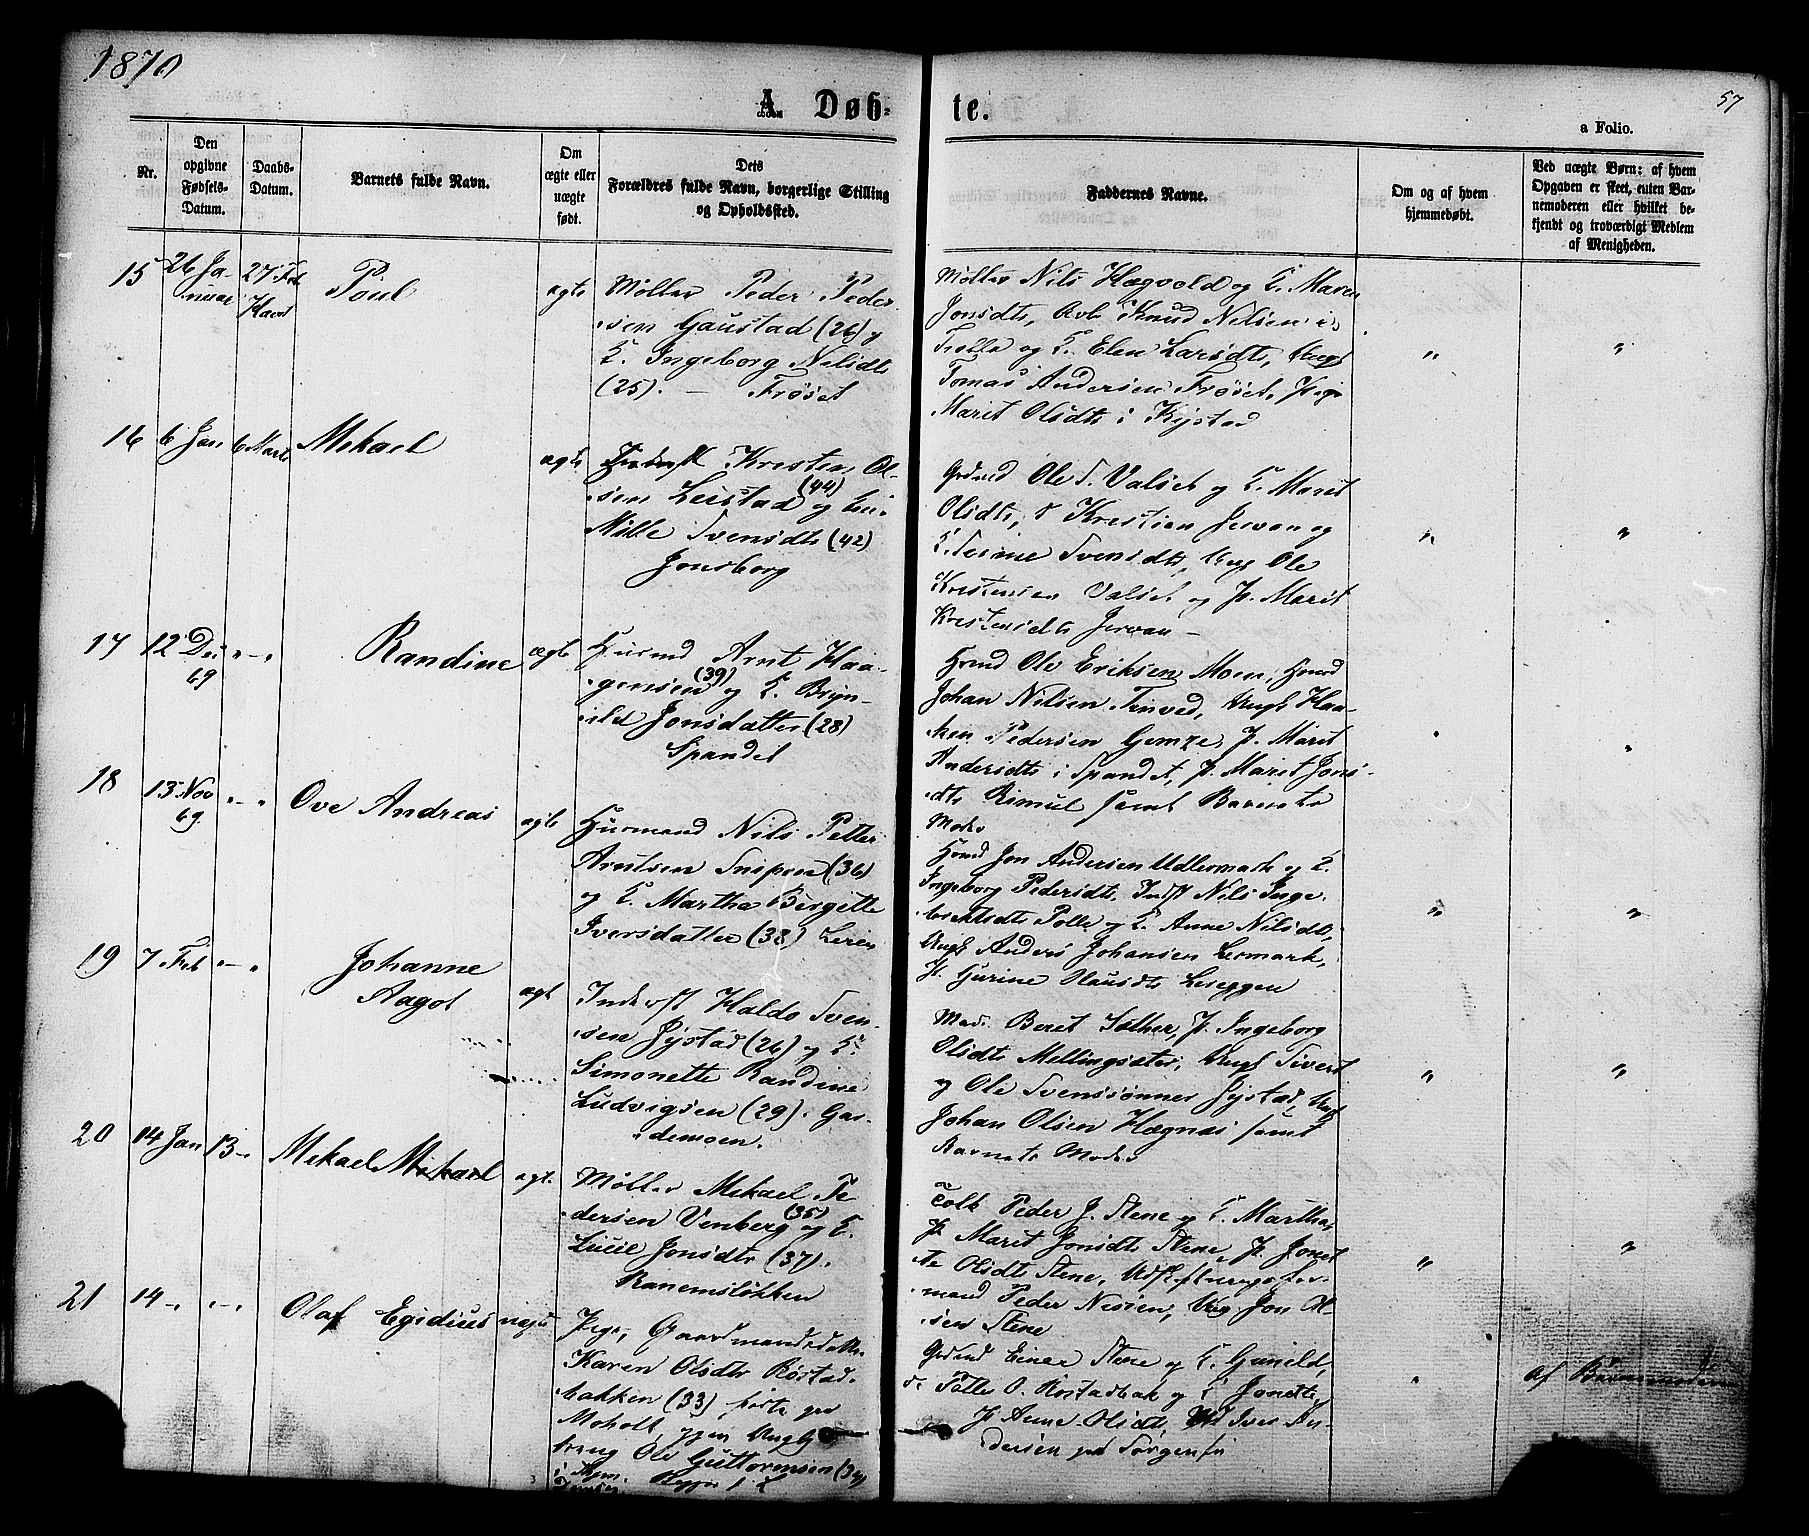 1870
57
A. Døb-
te.
a Folio.
Nr.
Den
opgivne
Fødsels-
Datum.
Daabs-
Datum.
Barnets fulde Navn.
Om
ægte eller
uægte
født.
Dets
Forældres fulde Navn, borgerlige Stilling
og Opholdssted.
Faddernes Navne.
Om og af hvem
hjemmedøbt.
Ved uægte Børn: af hvem
Opgaven er skeet, enten Bar-
nemoderen eller hvilket be-
kjendt og troværdigt Medlem
af Menigheden.
15
26 Ja-
nuar
27 Feb
Poul
ægte
Møller Peder Peder-
sen Gaustad (26) og
K. Ingeborg Nilsdtr
(25). — Frøset
Møller Nils Hægvold og K. Maren
Jonsdtr, Arb Knud Nilsen i
Trolla og K. Elen Larsdtr, Ungk
Tomas Andersen Frøset, Pige
Marit Olsdtr i Kystad
"
"
16
6 Jan
6 Marts
Mekael
ægte
Kristen Ol-
sen Leistad (44) og
Nille Svensdtr (42)
Jonsborg
Grdmd Ole T. Valset og K. Marit
Olsdtr, Kristian Jervan og
K. Svensdtr, Ungk Ole
Kristensen Valset og P. Marit
Kristensdtr Jervan —
"
"
17
12 Dec
69
" — "
Randine
ægte
Husmd Arnt Haa-
gensen (39) og K. Bryn-
ild Jonsdatter (28)
Spandet
Hsmd Ole Eriksen Moen, Hsmd
Johan Nilsen Tinved, Ungk Haa-
ken Pedersen Gemze, P. Marit
Andersdtr i Spandet, P. Marit Jons-
dtr Rimul samt Barnets
Moder
"
"
18
13 Nov
69
" — "
Ove Andreas
ægte
Husmand Nils Petter
Arntsen Snipen (36)
og K. Martha Birgitte
Iversdatter (38) Leren
Hsmd Jon Andersen Udlermark og K.
Ingeborg Pedersdtr, Indst Nils Inge-
brektsdtr Polle og K. Anne Nilsdtr,
Ungk Anders Johansen Lermark,
P. Gurine Olausdtr Lereggen
"
"
19
7 Feb
" — "
Johanne
Aagot
ægt
Inderst Haldo Sven-
sen Gystad (26) og K.
Simonette Randine
Ludvigsen (29). Gar-
demoen.
Mad. Beret Sæther, P. Ingeborg
Olsdtr Mellingsæter, Ungk Sivert
og Ole Svenssønner Gystad, Ungk
Johan Olsen Hægnæs samt
Barnets Moder
"
"
20
14 Jan
13 —
Mekael Mikael
ægt.
Møller Mekael Pe-
dersen Venberg (35) og K.
Lucie Jonsdtr (37).
Ranemsløkken
Tolk Peder J. Stene og K. Martha,
P. Marit Jonsdtr Stene, P. Jonet-
te Olsdtr Stene,
mand Peder Nisien, Ungk Jon Ol-
sen Stene
"
"
21
14 — "
" — "
Olaf Egidius
uægte
Pige, Gaardmandsdatter
Karen Olsdtr Rostad-
bakken (33), første paa
Moholt, Ungk
Ole Guttormsen (34)
Grdmd Einar Stene og K. Gunild,
Do Peller O. Rostadbak og K. Jonette,
P. Anne Olsdtr, Iver An-
dersen paa Sorgenfri
"
af Barnemoderen